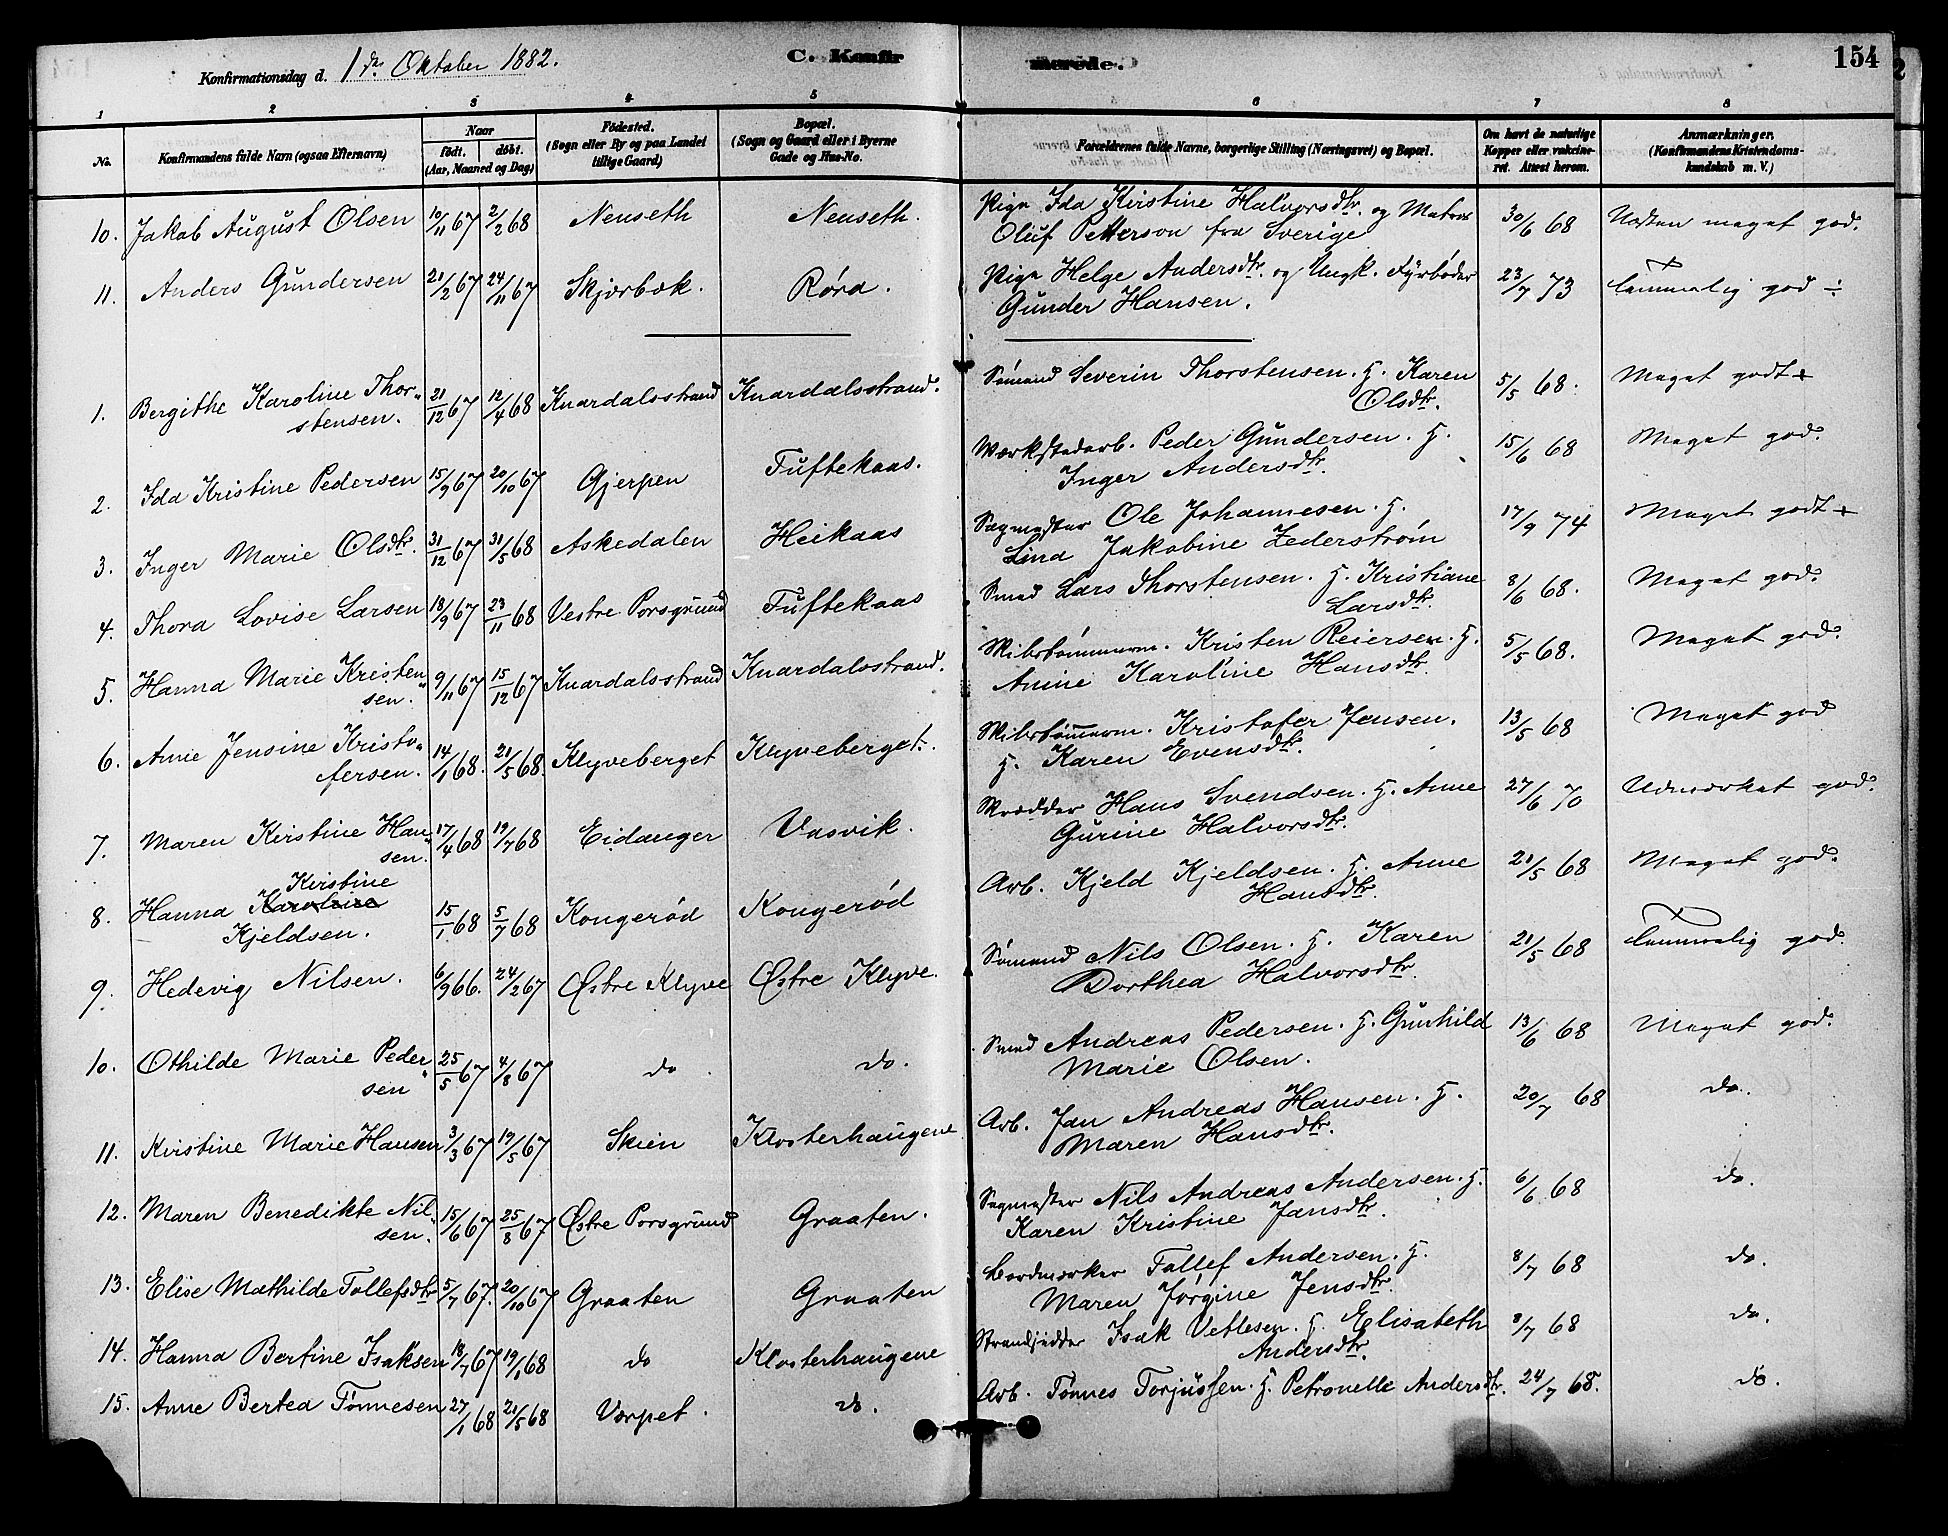 Konfirmationsdag d. 1ste Oktober 1882.
C. Konfirmerede.
154
1 2 3 4 5 6 7 8
No.
Konfirmandens fulde Navn (ogsaa Efternavn)
Naar
födt. döbt.
(Aar, Maaned og Dag)
Födested.
(Sogn eller By og paa Landet
tillige Gaard)
Bopæl.
(Sogn og Gaard eller i Byerne
Gade og Hus-No.
Forældrenes fulde Navne, borgerlige Stilling (Næringsvei) og Bopæl.
Om havt de naturlige
Kopper eller vakcine-
ret. Attest herom.
Anmærkninger.
(Konfirmandens Kristendoms-
kundskab m. V.)
10. Jakob August Olsen 10/11 67 2/2 68 Neuseth Neuseth. Pige Ida Kirstine Halvorsdtr. og Matros 30/6 68 Næsten meget god.
Oluf Petterson fra Sverige
11. Anders Gundersen 21/2 67 24/11 67 Skjærbæk. Røra. Pige Helge Andersdtr. og Ungk. Fyrbøder 23/7 73 Temmelig god ÷
Gunder Hansen.
1. Bergithe Karoline Thor- 21/12 67 12/4 68 Knardalsstrand Knardalsstrand. Sömand Severin Thorstensen. H. Karen 5/5 68. Meget godt +
stensen. Olsdtr.
2. Ida Kristine Pedersen 15/9 67 20/10 67 Gjerpen Tuftekaas. Værkstedarb. Peder Gundersen. H. 15/6 68 Meget god.
Inger Andersdtr.
3. Inger Marie Olsdtr. 31/12 67 31/5 68 Askedalen Heikaas Sagmester Ole Johannesen. H. 17/9 74 Meget godt +
Lina Jakobine Zederstrøm
4. Thora Lovise Larsen 18/9 67 23/11 68 Vestre Porsgrund Tuftekaas Smed Lars Thorstensen. H. Kristiane 8/6 68. Meget god.
Larsdtr.
5. Hanna Marie Kristen- 9/11 67 15/12 67 Knardalsstrand Knardalsstrand. Skibstømmerm. Kristen Reiersen. H. 5/5 68. Meget god.
sen. Anine Karoline Hansdtr.
6. Anne Jensine Kristo- 14/1 68. 21/5 68. Klyveberget Klyveberget. Skibstömmerm. Kristofer Jensen. 13/5 68 Meget god
fersen. H. Karen Evensdtr.
7. Maren Kirstine Han- 17/4 68 19/7 68 Eidanger Vasvik. Skrædder Hans Svendsen. H. Anne 27/6 70 Udmærket god.
sen. Gurine Halvorsdtr.
Kirstine
8. Hanna Karoline 15/1 68 5/7 68 Kongerød Kongerød Arb. Kjeld Kjeldsen. H. Anne 21/5 68 Meget god.
Kjeldsen. Hansdtr.
9. Hedevig Nilsen. 6/9 66. 24/2 67 Østre Klyve Østre Klyve. Sömand Nils Olsen. H. Karen 21/5 68 Temmelig god.
Dorthea Halvorsdtr.
10. Othilde Marie Peder- 25/5 67 4/8 67 do do. Smed Andreas Pedersen. H. Gunhild 13/6 68 Meget god.
sen Marie Olsen.
11. Kristine Marie Hansen 3/3 67 19/5 67 Skien Klosterhaugene Arb. Jan Andreas Hansen. H. 20/7 68 do.
Maren Hansdtr.
12. Maren Benedikte Nil- 15/6 67 25/8 67 Østre Porsgrund Graaten. Sagmester Nils Andreas Andersen. H. 6/6 68 do.
sen. Karen Kristine Jansdtr.
13. Elise Mathilde Tollefsdtr 5/7 67. 20/10 67 Graaten Graaten Bordmærker Tollef Andersen. H. 8/7 68 do.
Maren Jörgine Jensdtr.
14. Hanna Bertine Isaksen 18/7 67 19/1 68 do Klosterhaugene Strandsidder Isak Vetlesen. H. Elisabeth 8/7 68 do.
Andersdtr.
15. Anne Bertea Tönnesen 27/1 68 21/5 68 Værpet. do. Arb. Tönnes Torjussen. H. Petronelle Andersdtr. 24/7 68. do.